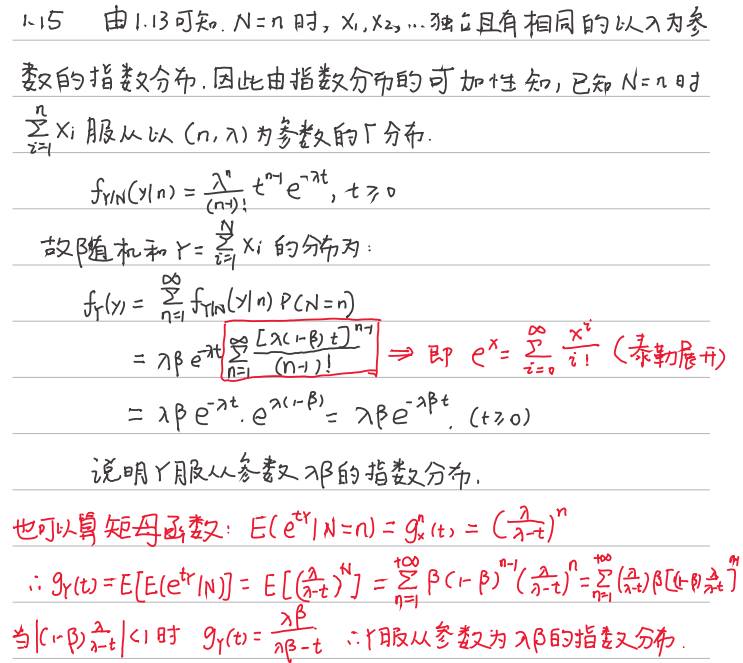 1.15 由1.13可知, N=n时, X₁,X₂,…独立且有相同的以λ为参
数的指数分布.因此由指数分布的可加性知,已知N=n时
∑_{i=1}^{n} Xi 服从以 (n,λ)为参数的Γ分布.
f_{Y|N}(y|n) = λⁿ/(n-1)! t^{n-1} e^{-λt}, t≥0
故随机和Y=∑_{i=1}^{N} Xi 的分布为:
f_Y(y) = ∑_{n=1}^{∞} f_{Y|N}(y|n) P(N=n)
= λβ e^{-λt} ∑_{n=1}^{∞} [λ(1-β)t]^{n-1}/(n-1)! ⇒ 即 e^x = ∑_{i=0}^{∞} x^i/i! (泰勒展开)
= λβ e^{-λt}. e^{λ(1-β)} = λβ e^{-λβt}. (t≥0)
说明Y服从参数λβ的指数分布.
也可以算矩母函数: E(e^{tY}|N=n) = g_x^n(t) = (λ/(λ-t))^n
∴ g_Y(t)=E[E(e^{tY}|N)] = E[(λ/(λ-t))^N] = ∑_{n=1}^{+∞} β(1-β)^{n-1}(λ/(λ-t))^n = ∑_{n=1}^{+∞} (λ/(λ-t))β[(1-β)λ/(λ-t)]^{n-1}
当|(1-β)λ/(λ-t)|<1时 g_Y(t)= λβ/(λβ-t) ∴Y服从参数为λβ的指数分布.